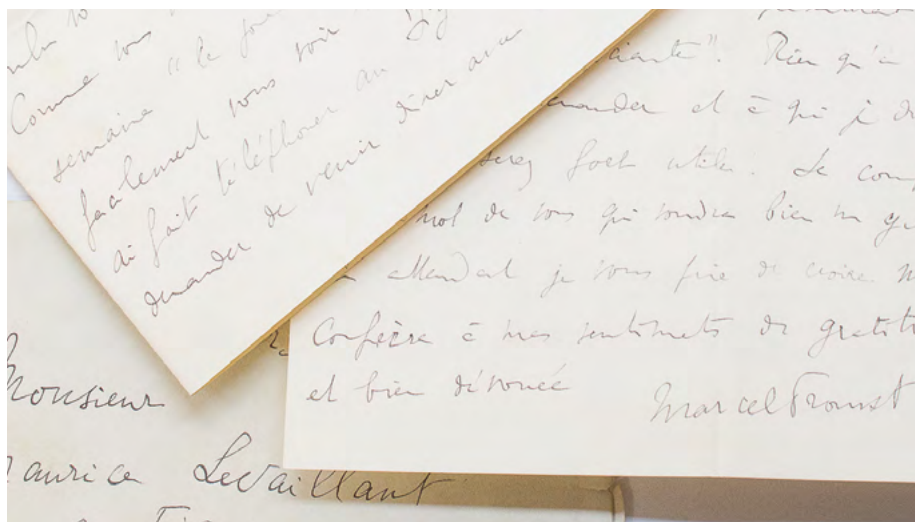 Comme vous
semaine "le
facilement vous voir
ai fait téléphoner au
demander de venir dîner avec
ciante". Rien qu'à
mander et à qui je
serez fort utile. Le
mot de vous qui voudra bien m
attendant je vous prie de croire m
Confrère à mes sentiments de gratit
et bien dévouée
Marcel Proust
Monsieur
aurice Levaillant